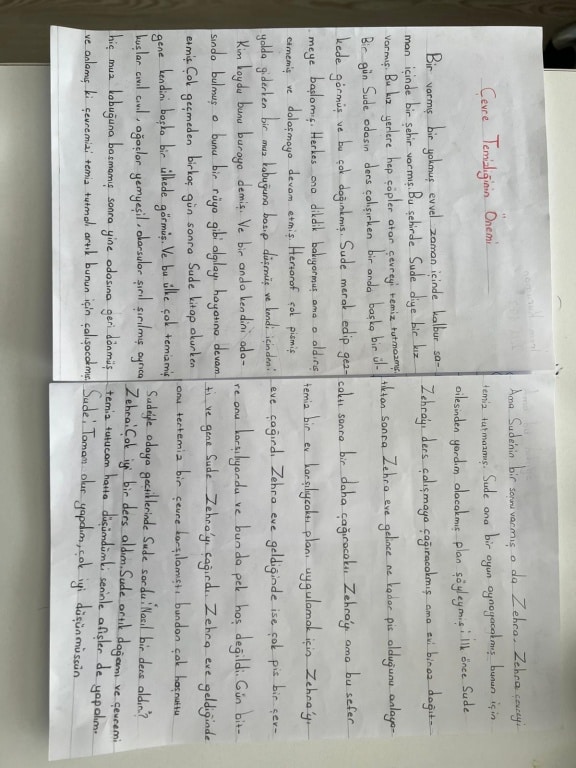 Çevre Temizliğinin Önemi
Bir varmış bir yokmuş evvel zaman içinde kalbur sa-
man içinde bir şehir varmış. Bu şehirde Sude diye bir kız
varmış. Bu kız yerlere hep çöpler atar çevreyi temiz tutmazmış
Bir gün Sude odasın ders çalışırken bir anda başka bir ül-
kede görmüş ve bu çok dağınıkmış. Sude merak edip gez-
meye başlamış. Herkes ona dikdik bakıyormuş ama o aldırış
etmemiş ve dolaşmaya devam etmiş. Hertaraf çok pismiş
yolda giderken bir muz kabuğuna basıp düşmüş ve kendi içinden:
Kim koydu bunu buraya demiş. Ve bir anda kendini oda-
sında bulmuş o bunu bir rüya gibi algılayı hayatına devam
etmiş Çok geçmeden birkaç gün sonra Sude kitap okurken
gene kendini başka bir ülkede görmüş. Ve bu ülke çok temizmiş
kuşlar cıvıl cıvıl, ağaçlar yemyeşil, akarsular şırıl şırılmış ayrıca
hiç muz kabuğuna basmamış sonra yine odasına geri dönmüş
ve anlamış ki çevremizi temiz tutmalı artık bunun için çalışacakmış
Ama Sude'nin bir sorunu varmış o da Zehra. Zehra çevreyi
temiz tutmazmış. Sude ona bir oyun oynayacakmış bunun için
ailesinden yardım alacakmış plan şöyleymiş: ilk önce Sude
Zehra'yı ders çalışmaya çağıracakmış ama evi biraz dağıt-
tıktan sonra Zehra eve gelince ne kadar pis olduğunu anlaya-
caktı sonra bir daha çağıracaktı Zehra'yı ama bu sefer
temiz bir ev karşılıycaktı planı uygulamak için Zehra'yı
eve çağırdı Zehra eve geldiğinde ise çok pis bir çev-
re onu karşılıyordu ve bunda pek hoş değildi. Gün bit-
ti ve gene Sude Zehra'yı çağırdı. Zehra eve geldiğinde
onu tertemiz bir çevre karşılamıştı bundan çok hoşnuttu
Sudeyle odaya geçtiklerinde Sude sordu: Nasıl bir ders aldın?
Zehra: Çok iyi bir ders aldım. Sude artık doğamı ve çevremi
temiz tutucam hatta düşündümki seninle afişler de yapalım
Sude: Tamam olur yapalım, çok iyi düşünmüşsün